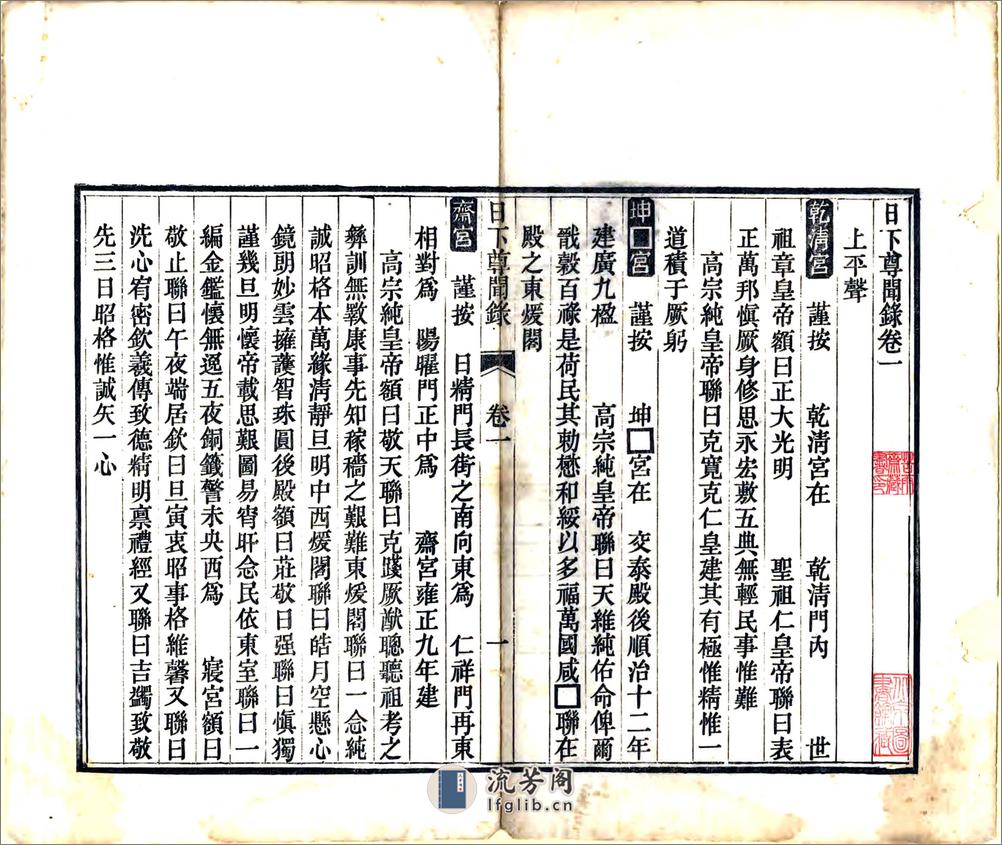 日下尊聞錄卷一
上平聲
乾清宮 謹按 乾清宮在 乾清門內 世
祖章皇帝額曰正大光明 聖祖仁皇帝聯曰表
正萬邦慎厥身修思永宏敷五典無輕民事惟難
高宗純皇帝聯曰克寬克仁皇建其有極惟精惟一
道積于厥躬
坤□宮 謹按 坤□宮在 交泰殿後順治十二年
建廣九楹 高宗純皇帝聯曰天維純佑命俾爾
戩穀百祿是荷民其勑懋和綏以多福萬國咸□聯在
殿之東煖閣
日下尊聞錄 卷一 一
齋宮 謹按 日精門長街之南向東為 仁祥門再東
相對為 陽曜門正中為 齋宮雍正九年建
高宗純皇帝額曰敬天聯曰克踐厥猷聰聽祖考之
彝訓無斁康事先知稼穡之艱難東煖閣聯曰一念純
誠昭格本萬緣清靜旦明中西煖閣聯曰皓月空懸心
鏡朗妙雲擁護智珠圓後殿額曰莊敬日强聯曰慎獨
謹幾旦明懷帝載思艱圖易宵旰念民依東室聯曰一
編金鑑懷無逸五夜銅籤警未央西為 寢宮額曰
敬止聯曰午夜端居欽曰旦寅衷昭事格維馨又聯曰
洗心宥密欽羲傳致德精明稟禮經又聯曰吉蠲致敬
先三日昭格惟誠矢一心
流芳阁
lfglib.cn